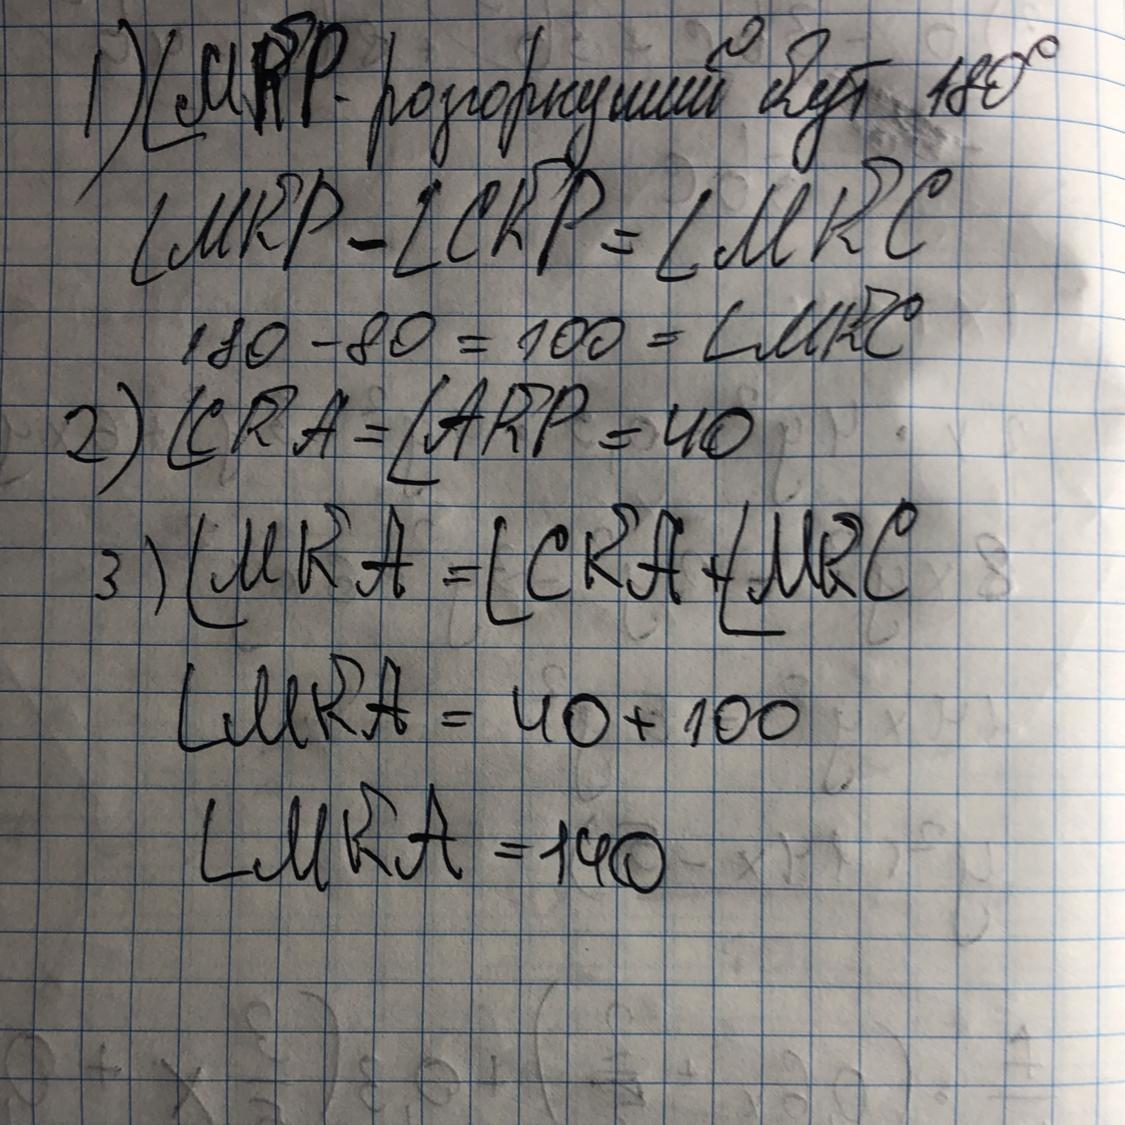 1) ∠MKP - розгорнутий кут 180°
∠MKP - ∠CKP = ∠MKC
180 - 80 = 100 = ∠MKC
2) ∠CKA = ∠AKP = 40
3) ∠MKA = ∠CKA + ∠MKC
∠MKA = 40 + 100
∠MKA = 140